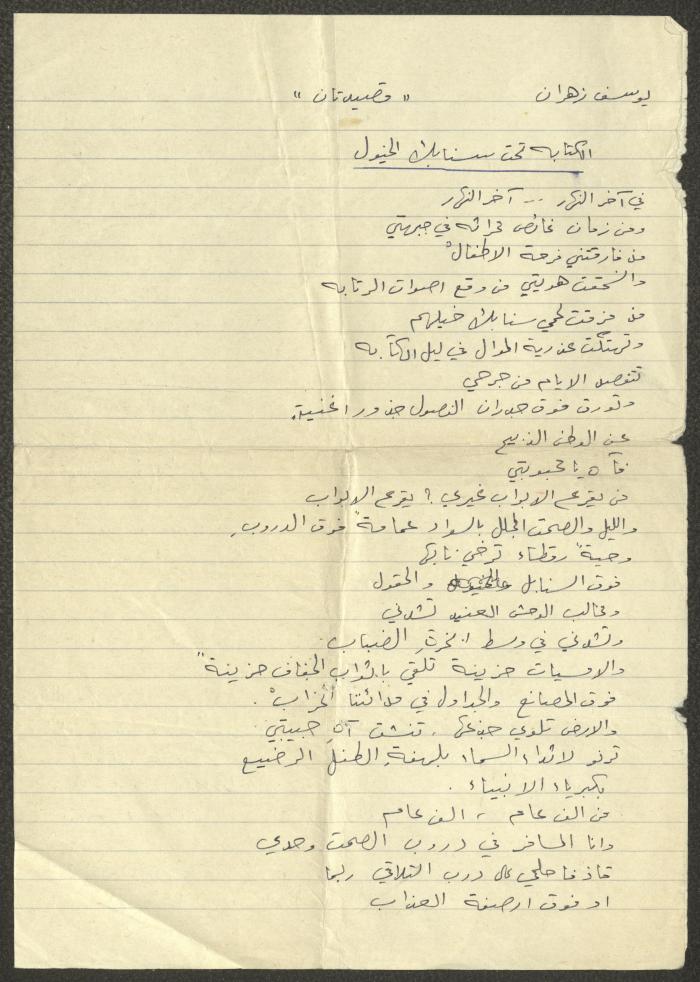 يوسف زهران « قصيدتان »
الكتابه تحت سنابك الخيول
في آخر النهار .. آخر النهار
ومن زمان غائص في جبهتي
من فارقتني فرحة الاطفالْ
وانسحقت هويتي من وقع اصوات الرتابه
من مزقت لحمي سنابك خيلهم
وتهتكت عذرية الموال في ليل الكآبه
تنفصد الايام من جرحي
وتورق فوق جدران الفصول جذور اغنية
عن الوطن الذبيح
فآه يا محبوبتي
من يقرع الابواب غيري ؟ يقرع الابواب
والليل والصمت المجلل بالسواد عمامة فوق الدروب
وحيةً رقطاء ترخي نابها
فوق السنابل والحقول
ومخالب الوحش العنيد تشدني
وتشدني في وسط الضباب
والامسيات حزينة تلقي باثواب الجفاف حزينةً
فوق المصانع والجداول في مدائننا الخرابْ .
والارض تلوي جذعها . تنشق آهِ حبيبتي
ترنو لاثداء السماء بلهفة الطفل الرضيع
بكبرياء الانبياء .
من الف عام ، الف عام
وانا المسافر في دروب الصمت وحدي
قاذفا حلمي على درب التلاقي ربما
او فوق ارصفة العذاب